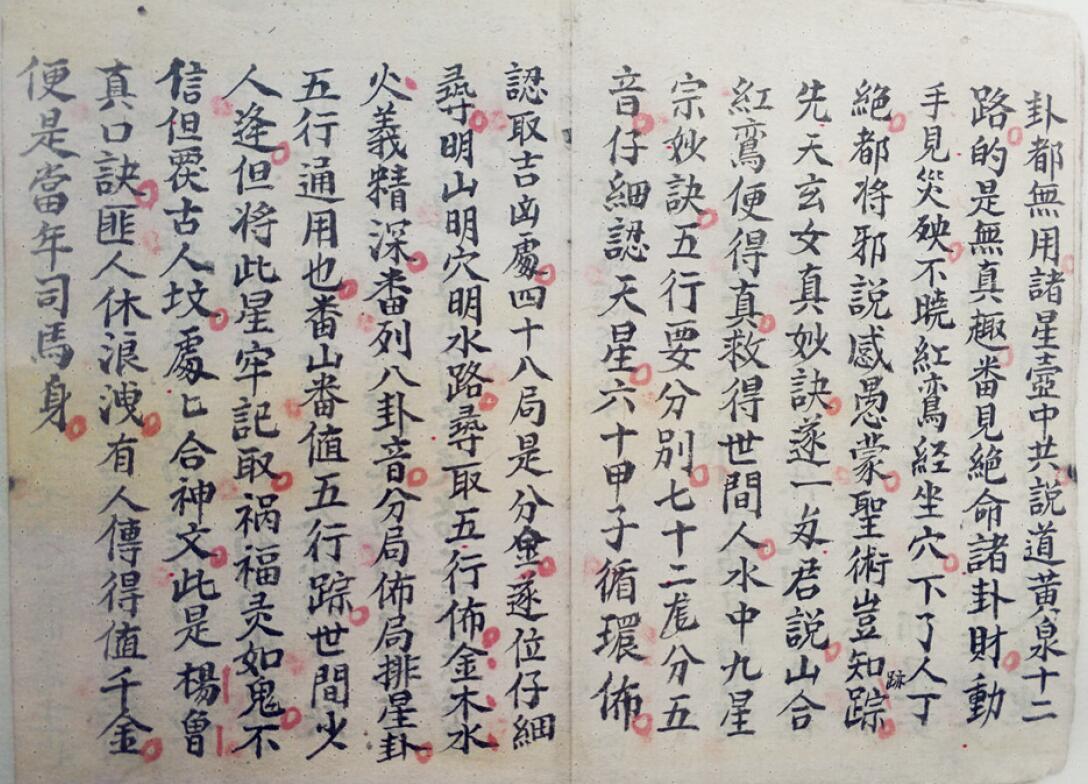 卦都無用諸星壺中共説道黄泉十二
路的是無真趣番見絶命諸卦財動
手見災殃不曉紅鸞経坐穴下了人丁
絶都将邪説感愚蒙聖術豈知踪跡
先天玄女真妙訣遂一為君説山合
紅鸞便得真救得世間人水中九星
宗妙訣五行要分別七十二龙分五
音仔細認天星六十甲子循環佈
認取吉凶處四十八局是分金逐位仔細
尋明山明穴明水路尋取五行佈金木水
火義精深番列八卦音分局佈局排星卦
五行通用也番山番值五行踪世間少
人逢但将此星牢記取禍福灵如鬼不
信但覆古人坟處匕合神文此是楊曾
真口訣匪人休浪洩有人傳得值千金
便是當年司馬身